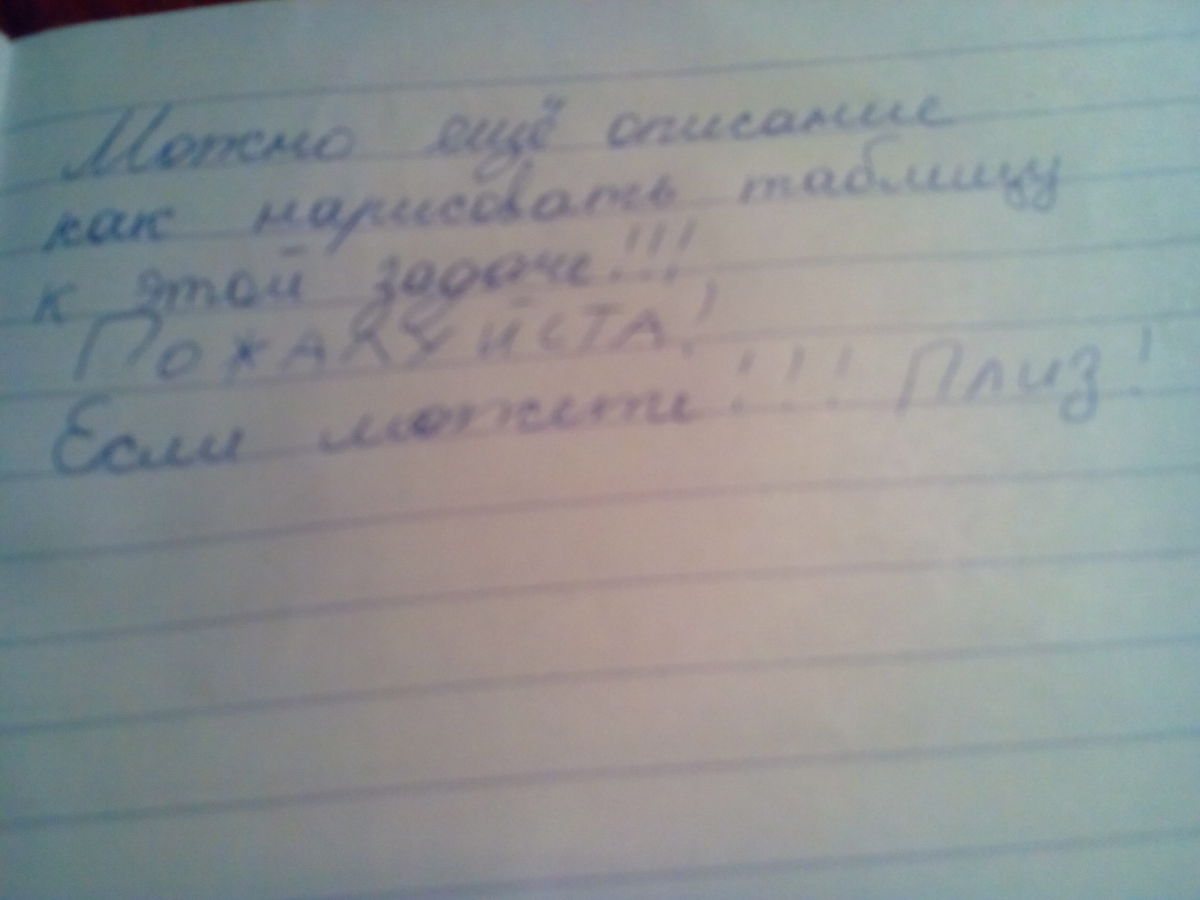 Можно ещё описание
как нарисовать таблицу
к этой задаче!!!
ПОЖАЛУЙСТА!
Если можете!!! Плиз!